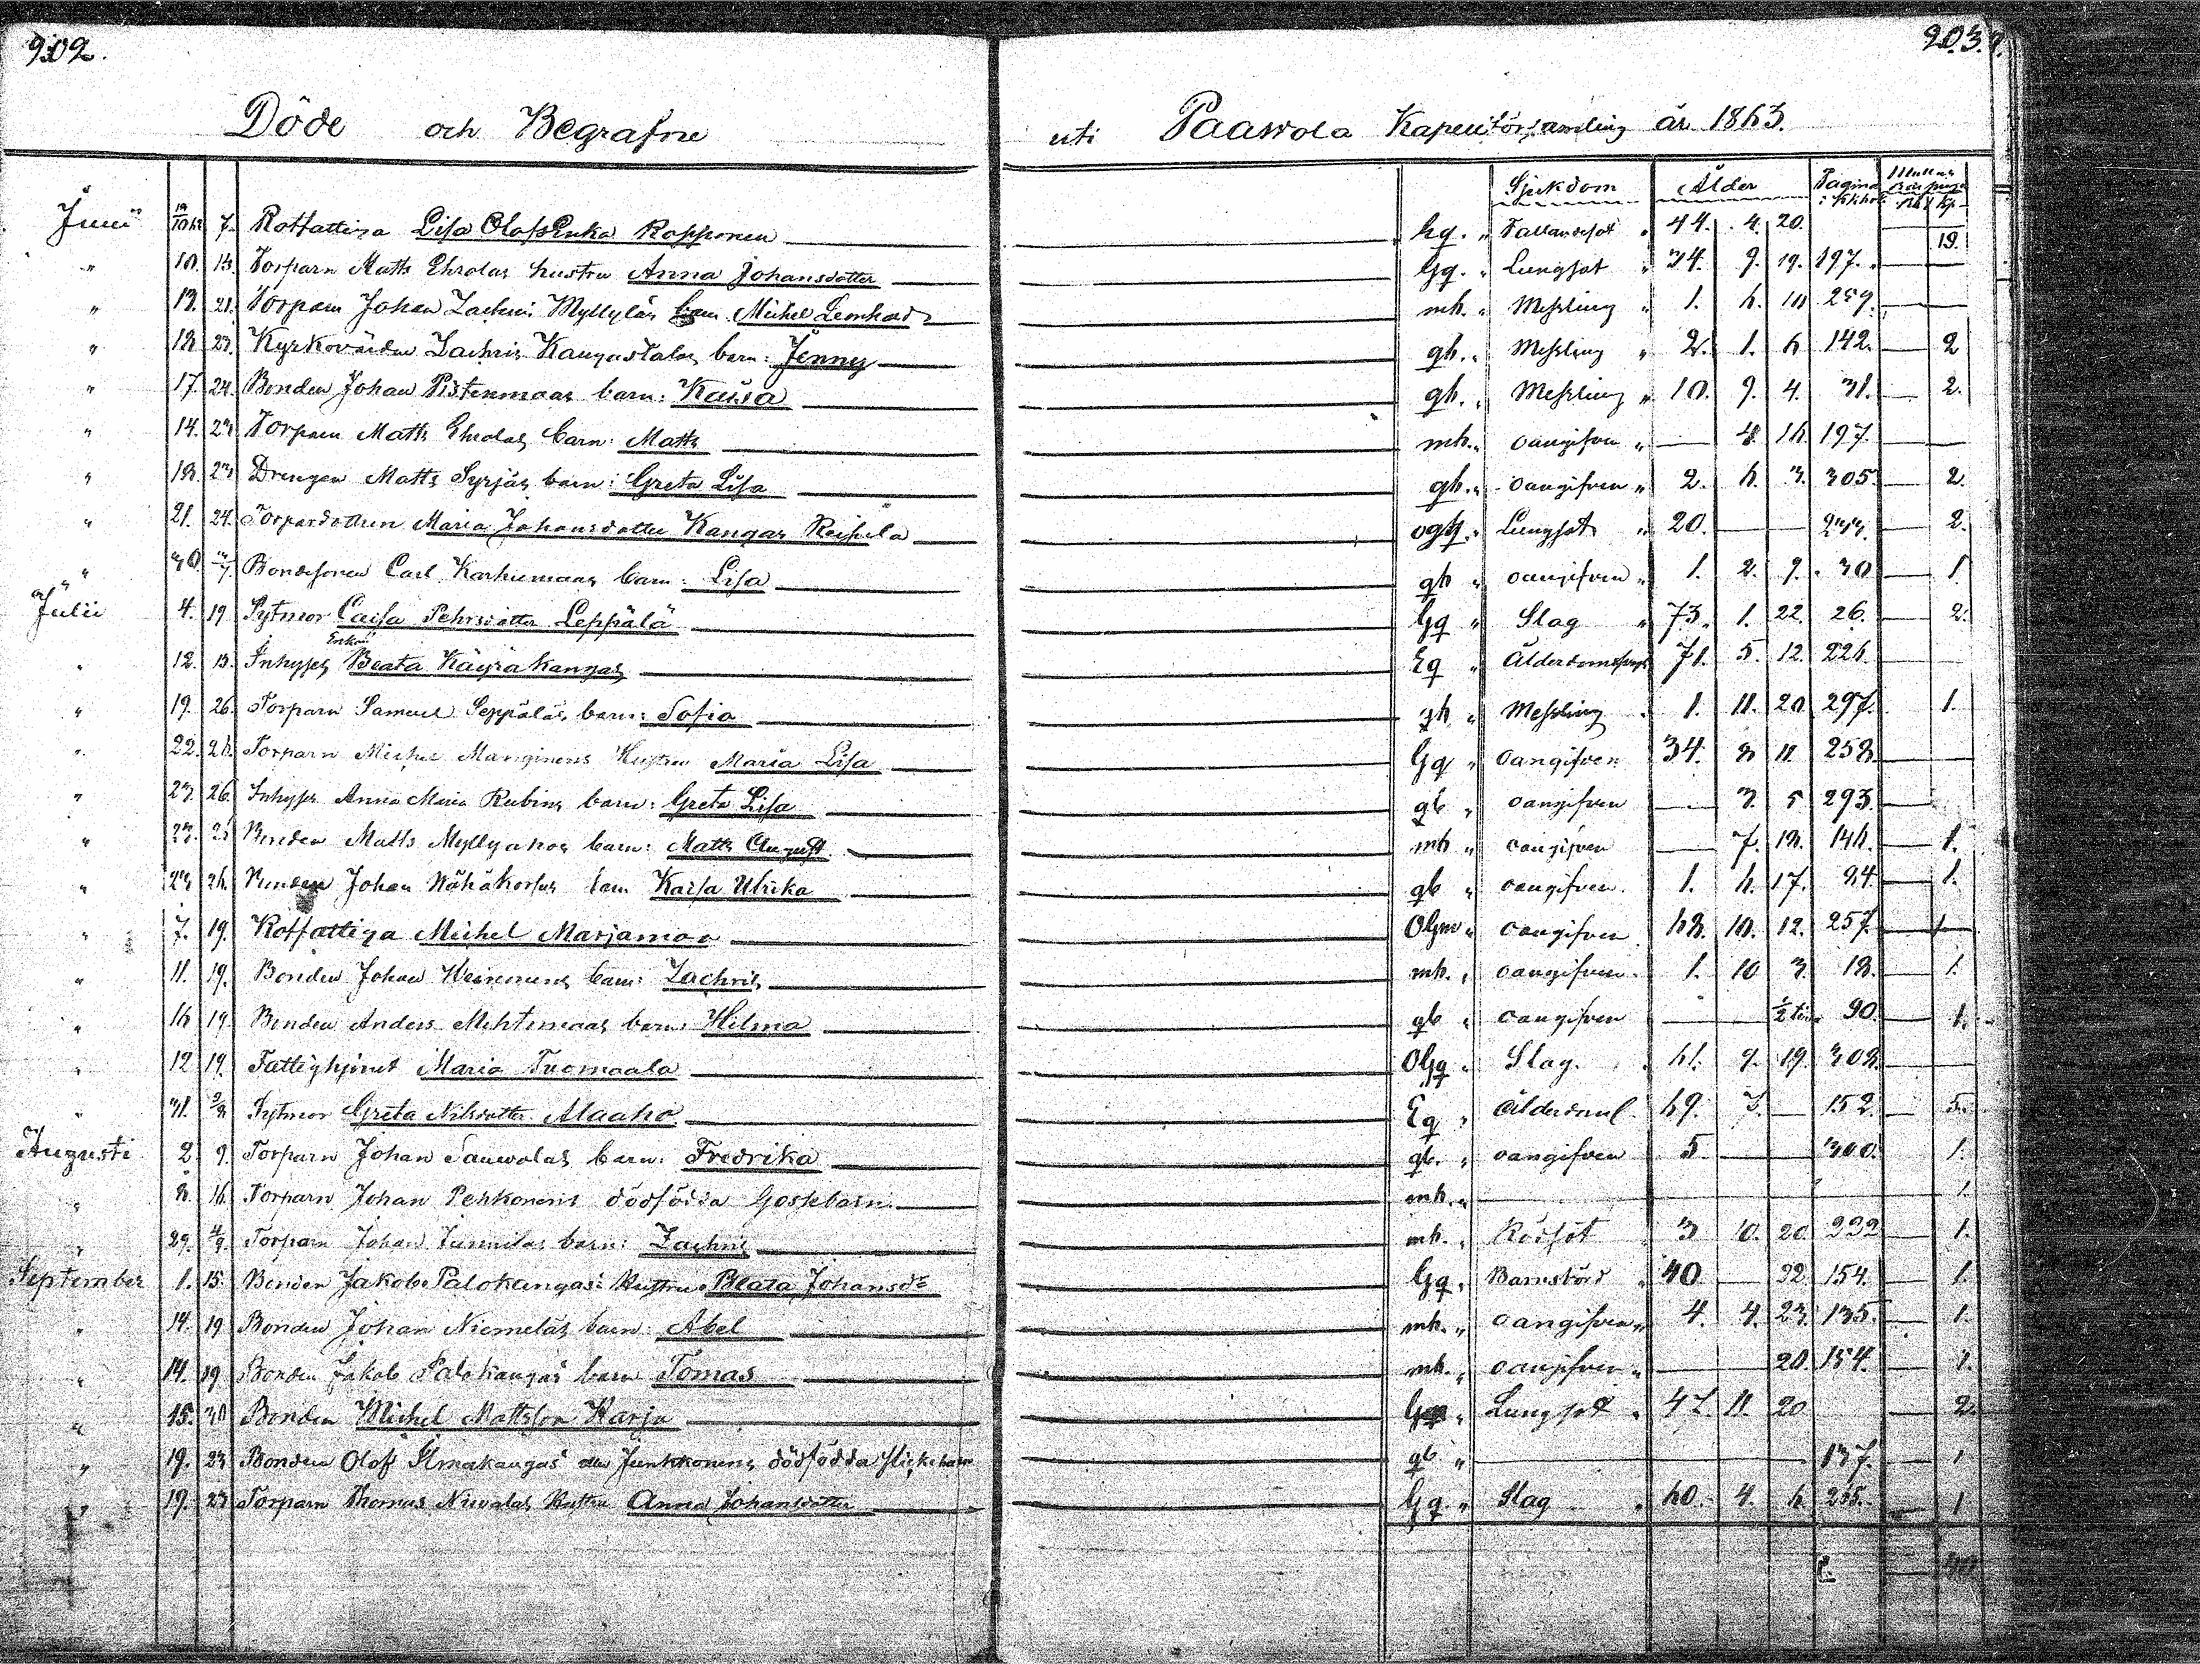 902.
903.
Döde och Begrafne uti Paawola Kapellförsamling år 1863.
Sjukdom Ålder Pagina
Junii 7. Rotfattiga Lisa Olofs Enka Ropponen hq. " Fallandesot " 44. 4. 20. 19.
" 10. 13. Torparn Matts Ehrolas hustru Anna Johansdotter Gq. " Lungsot " 34. 9. 19. 197.
" 13. 21. Torparn Johan Zachris Myllyläs barn Michel Leonhard mb. " Messling " 1. 6. 10 259.
" 18 23. Kyrkovärden Zachris Kangastalos barn: Jenny gb. " Messling " 2. 1. 6 142. 2
" 17. 24. Bonden Johan Pistenmaas barn: Kaisa gb. " Messling " 10. 9. 4. 31. 2.
" 14. 23 Torparn Matts Ehrolas barn: Matts mb. " oangifven " 8. 16. 197.
" 18. 23 Drengen Matts Syrjäs barn: Greta Lisa gb. " oangifven " 2. 6. 3. 305. 2
" 21. 24. Torpardottren Maria Johansdotter Kangas Reisela ogq. " Lungsot " 20. 233. 2.
" 30. Bondesonen Carl Karhumaas barn: Lisa gb " oangifven " 1. 2. 9. 30 1
Julii 4. 19 Sytmor Caisa Pehrsdotter Leppälä Gq " Slag " 73. 1. 22. 26. 2.
Enkan
" 12. 13. Inhyses Beata Käyräkangas Eq " Ålderdoms 71. 5. 12. 226.
" 19. 26. Torparn Samuel Seppäläs barn: Sofia gb " Messling 1. 11. 20 297. 1.
" 22. 26. Torparn Michel Manginens Hustru Maria Lisa Gq " oangifven 34. 8 11. 258
" 23. 26. Inhyses Anna Maria Rubins barn: Greta Lisa gb " oangifven 3. 5 293.
" 23. 25 Bonden Matts Myllyahos barn: Matts August mb " oangifven 7. 18. 146. 1.
" 23 26. Bonden Johan Wähäkorpus barn Kaisa Ulrika gb " oangifven 1. 6. 17. 84. 1.
" 7. 19. Rotfattiga Michel Marjamaa Ogm " oangifven 68. 10. 12. 257. 1
" 11. 19. Bonden Johan Heinonens barn: Zachris mb. " oangifven 1. 10 3. 18. 1.
" 16 19. Bonden Anders Mehtimaas barn: Hilma gb " oangifven 90. 1.
" 12 19. Fattighjonet Maria Tuomaala Ogq " Slag. 61. 9. 19. 308.
" 31. 2/8 Sytmor Greta Nilsdotter Alaaho Eq " Ålderdoml. 69. 7. 152. 5.
Augusti 2. 9. Torparn Johan Sauwolas barn: Fredrika gb. " oangifven 5 300. 1.
" 8. 16. Torparn Johan Pehkonens dödfödda Gossebarn mb. " 1.
" 29. 4/9. Torparn Johan Junnilas barn: Zachris mb. " Rödsot 3 10. 20. 232 1.
September 1. 15. Bonden Jakob Palokangas: Hustru Beata Johansdr Gq " Barnsbörd " 40 22. 154. 1.
" 14. 19 Bonden Johan Niemeläs barn: Abel mb. " oangifven " 4. 4. 23. 135. 1.
" 14. 19 Bonden Jakob Palokangas barn Tomas mb. " oangifven " 20. 154. 1.
" 15. 30 Bonden Michel Mattsson Karja " Lungsot " 47. 11. 20 2.
" 19. 23 Bonden Olof Ilmakangas Junkkonens dödfödda flickebarn gb " 137. 1
" 19. 23 Torparn Thomas Niwalas Hustru Anna Johansdotter Gq. " Slag " 60. 4. 6. 235. 1